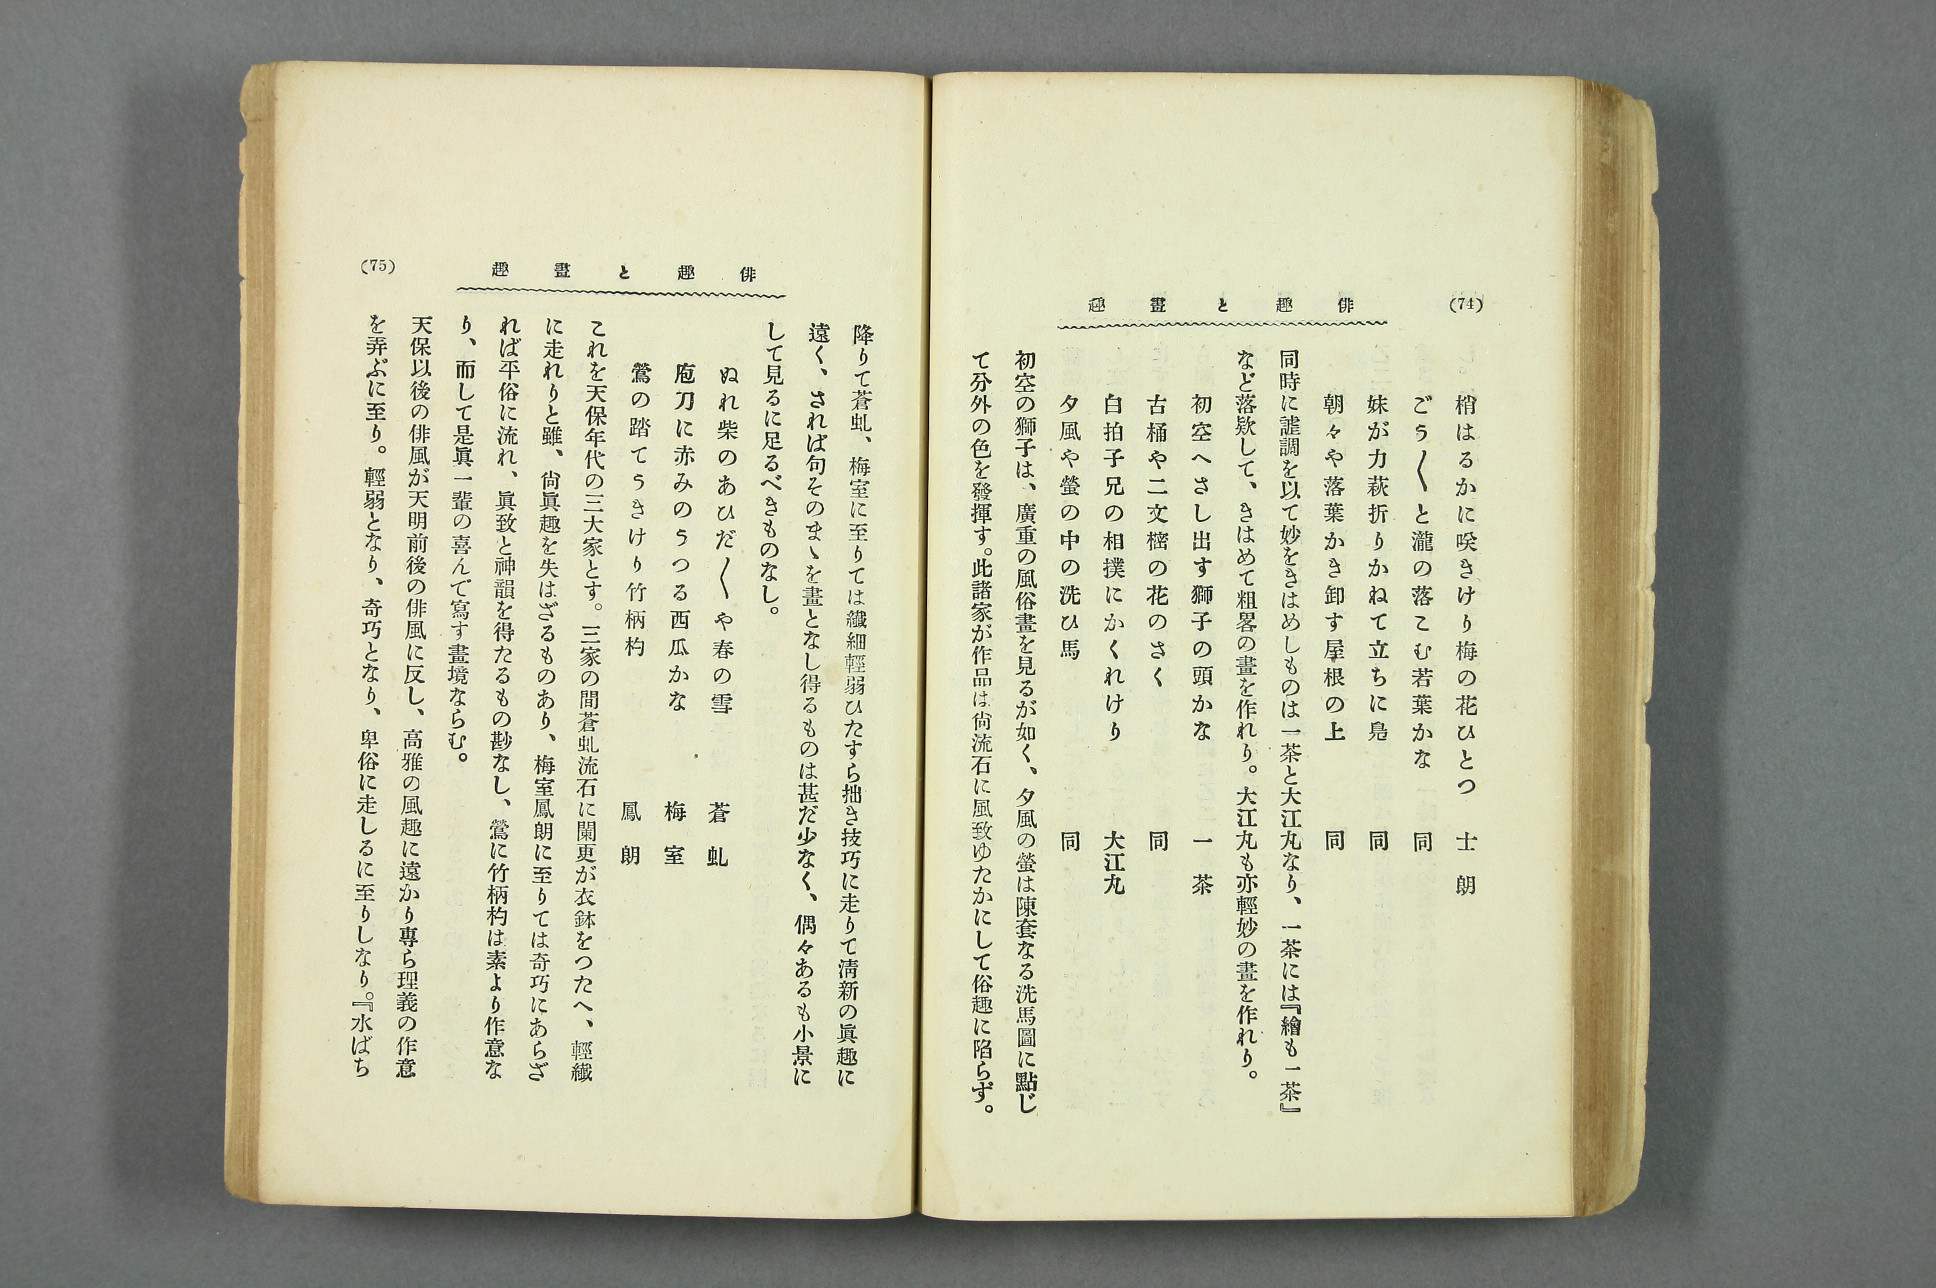 (74)
俳趣と畫趣
梢はるかに咲きけり梅の花ひとつ　士朗
ごう〱と瀧の落こむ若葉かな　同
妹が力萩折りかねて立ちに鳧　同
朝々や落葉かき卸す屋根の上　同
同時に謔調を以て妙をきはめしものは一茶と大江丸なり、一茶には『繪も一茶』
など落欵して、きはめて粗畧の畫を作れり。大江丸も亦輕妙の畫を作れり。
初空へさし出す獅子の頭かな　一茶
古桶や二文樒の花のさく　同
白拍子兄の相撲にかくれけり　大江丸
夕風や螢の中の洗ひ馬　同
初空の獅子は、廣重の風俗畫を見るが如く、夕風の螢は陳套なる洗馬圖に點じ
て分外の色を發揮す。此諸家が作品は尙流石に風致ゆたかにして俗趣に陷らず。
俳趣と畫趣
(75)
降りて蒼虬、梅室に至りては纖細輕弱ひたすら拙き技巧に走りて淸新の眞趣に
遠く、されば句そのまゝを畫となし得るものは甚だ少なく、偶々あるも小景に
して見るに足るべきものなし。
ぬれ柴のあひだ〱や春の雪　蒼虬
庖刀に赤みのうつる西瓜かな　梅室
鶯の踏てうきけり竹柄杓　鳳朗
これを天保年代の三大家とす。三家の間蒼虬流石に闌更が衣鉢をつたへ、輕纖
に走れりと雖、尙眞趣を失はざるものあり、梅室鳳朗に至りては奇巧にあらざ
れば平俗に流れ、眞致と神韻を得たるもの尠なし、鶯に竹柄杓は素より作意な
り、而して是眞一輩の喜んで寫す畫境ならむ。
天保以後の俳風が天明前後の俳風に反し、高雅の風趣に遠かり專ら理義の作意
を弄ぶに至り。輕弱となり、奇巧となり、卑俗に走しるに至りしなり。『水ばち